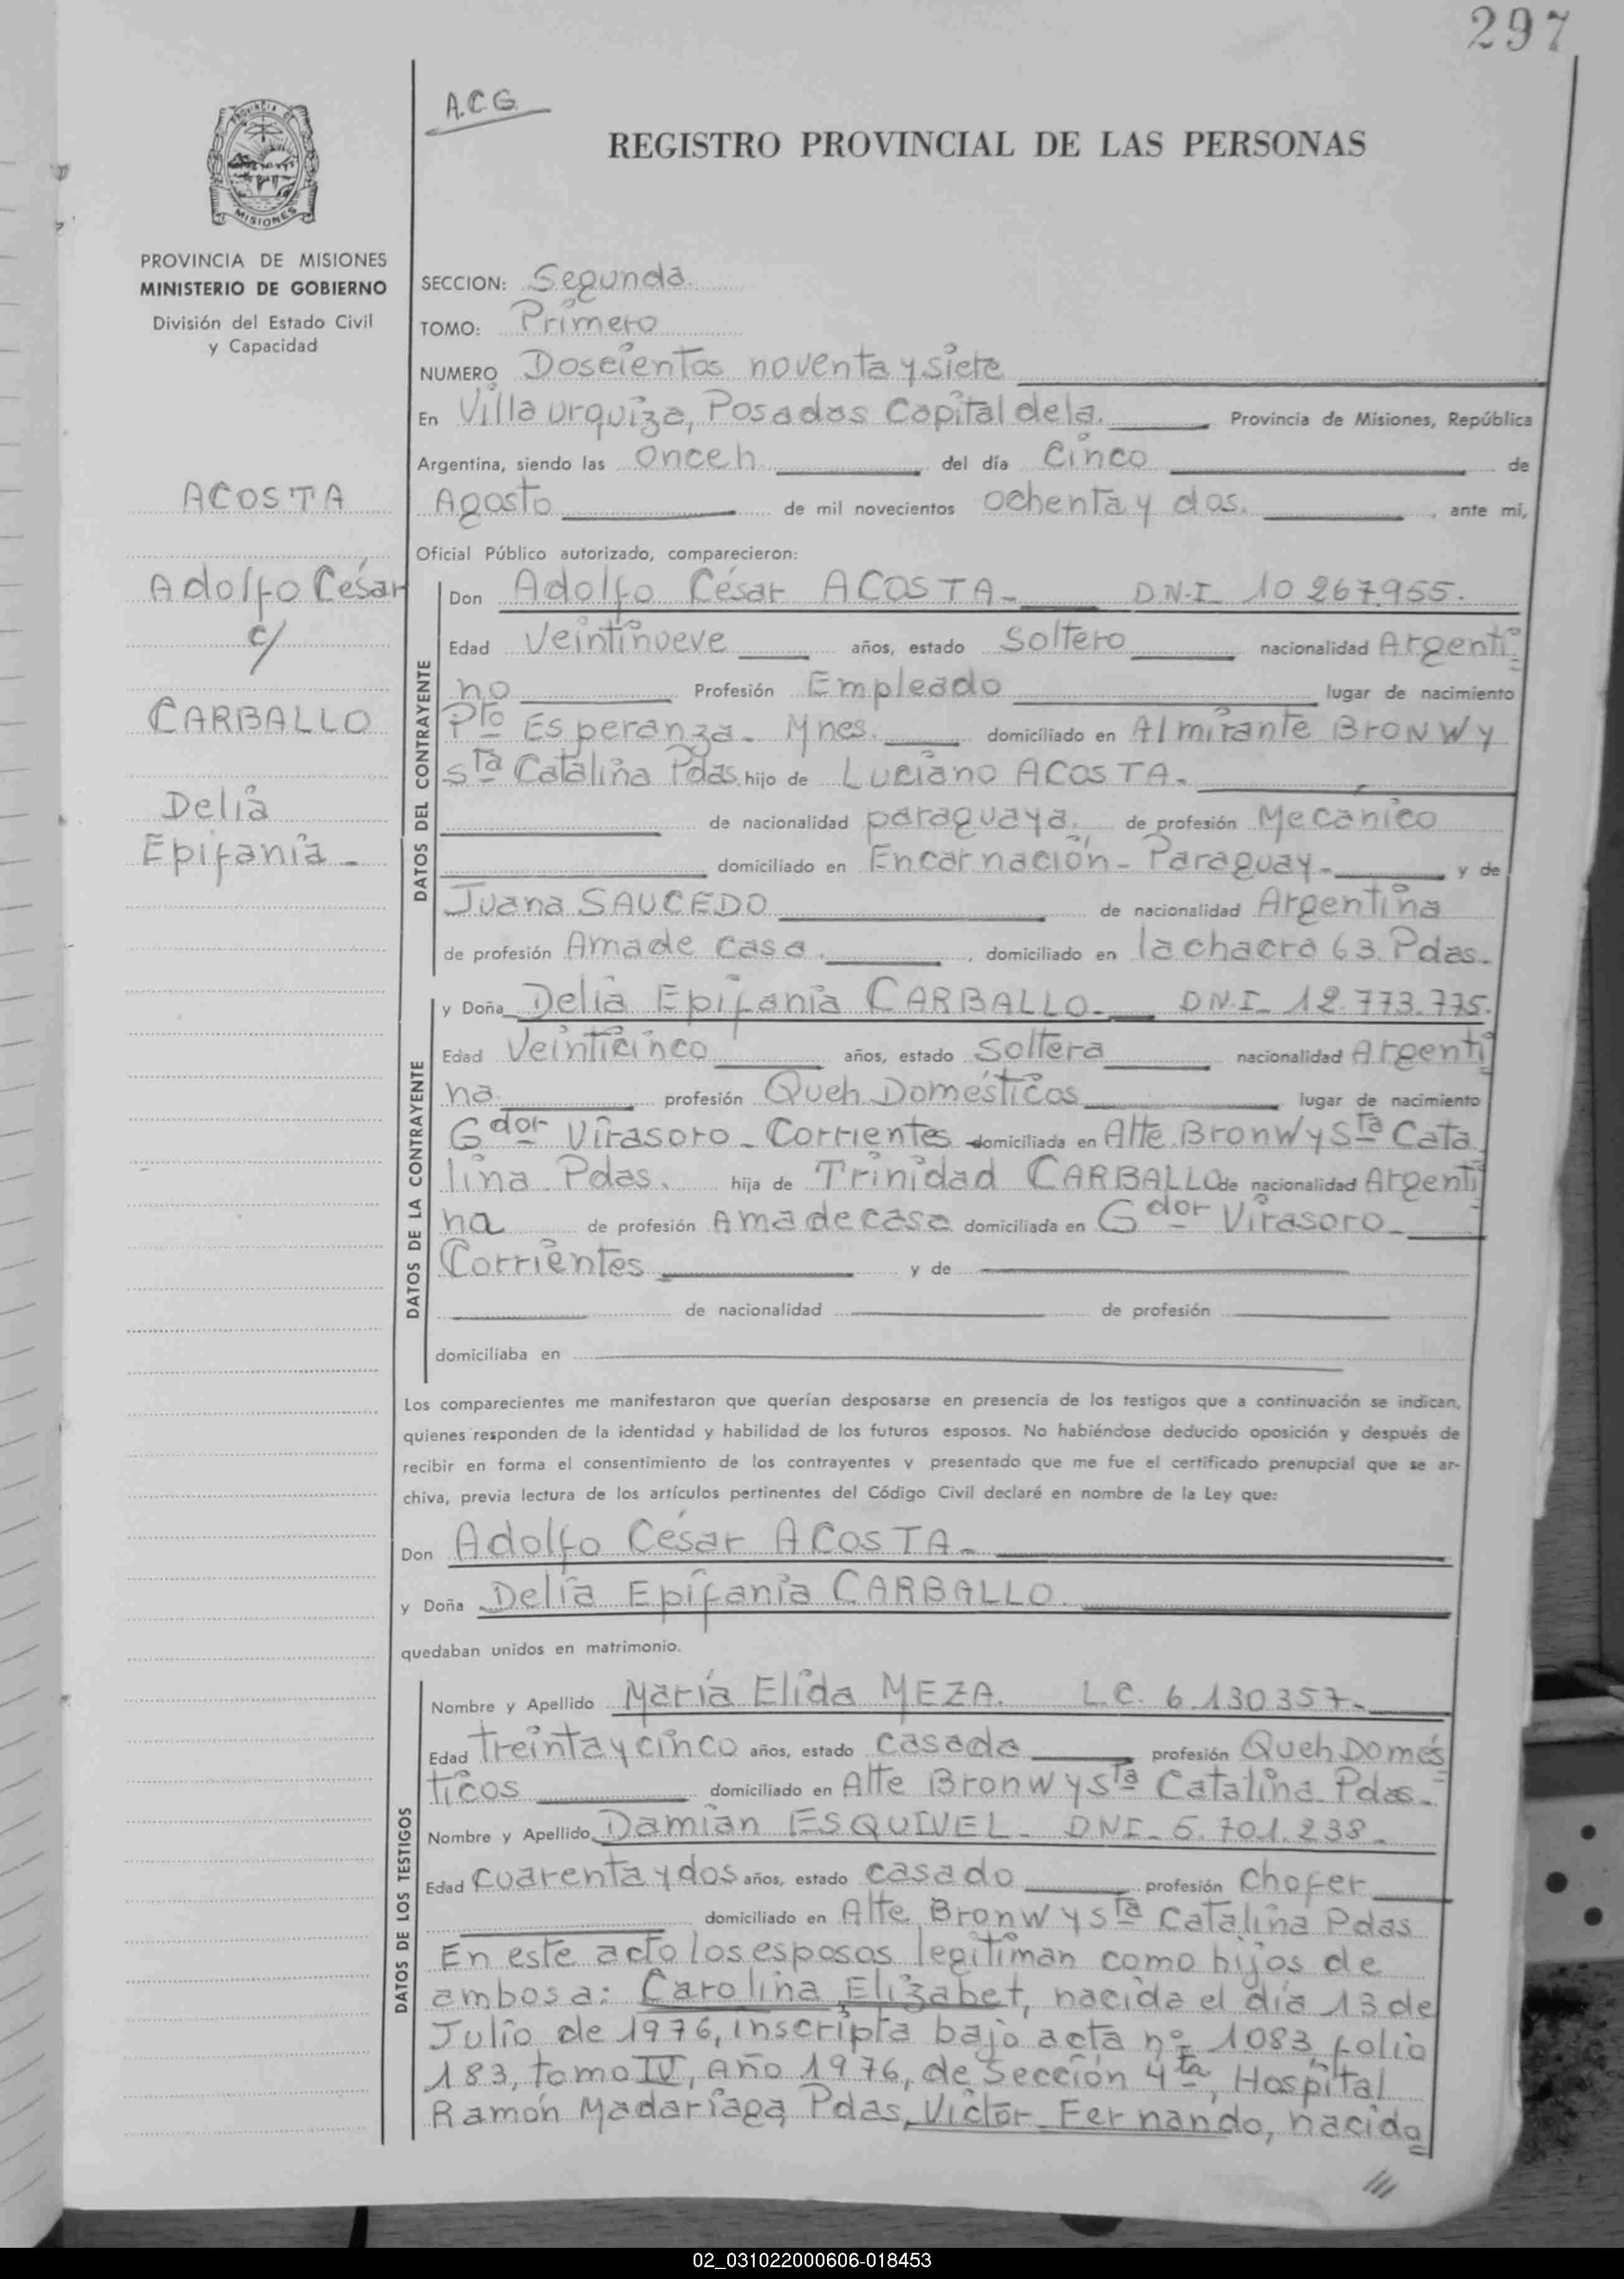 297
A.C.G
REGISTRO PROVINCIAL DE LAS PERSONAS
PROVINCIA DE
MISIONES
PROVINCIA DE MISIONES
MINISTERIO DE GOBIERNO
División del Estado Civil
y Capacidad
ACOSTA
Adolfo César
c/
CARBALLO
Delia
Epifania -
SECCION: Segunda.
TOMO: Primero
NUMERO Doscientos noventa y siete
En Villa urquiza, Posadas Capital de la. Provincia de Misiones, República
Argentina, siendo las once h del día cinco de
Agosto de mil novecientos ochenta y dos. , ante mi,
Oficial Público autorizado, comparecieron:
DATOS DEL CONTRAYENTE
Don Adolfo César ACOSTA- D.N.I- 10 267.955.
Edad Veintinueve años, estado Soltero nacionalidad Argenti
no Profesión Empleado lugar de nacimiento
Pto Esperanza- Mnes. domiciliado en Almirante BRONW y
sta Catalina Pdas. hijo de Luciano ACOSTA-
de nacionalidad paraguaya. de profesión Mecánico
domiciliado en Encarnación- Paraguay- y de
Juana SAUCEDO de nacionalidad Argentina
de profesión Ama de casa. , domiciliado en la chacra 63. Pdas.
DATOS DE LA CONTRAYENTE
y Doña Delia Epifania CARBALLO- D.N.I- 12.773.775.
Edad Veinticinco años, estado Soltera nacionalidad Argenti
na. profesión Queh. Domésticos lugar de nacimiento
Gdor Virasoro - Corrientes domiciliada en Alte. Bronw y Sta Cata
lina- Pdas. hija de Trinidad CARBALLO de nacionalidad Argenti
na de profesión Ama de casa domiciliada en Gdor Virasoro-
Corrientes y de
de nacionalidad de profesión
domiciliaba en
Los comparecientes me manifestaron que querían desposarse en presencia de los testigos que a continuación se indican,
quienes responden de la identidad y habilidad de los futuros esposos. No habiéndose deducido oposición y después de
recibir en forma el consentimiento de los contrayentes y presentado que me fue el certificado prenupcial que se ar-
chiva, previa lectura de los artículos pertinentes del Código Civil declaré en nombre de la Ley que:
Don Adolfo César ACOSTA-
y Doña Delia Epifania CARBALLO.
quedaban unidos en matrimonio.
DATOS DE LOS TESTIGOS
Nombre y Apellido María Elida MEZA. L.C. 6.130357-
Edad treinta y cinco años, estado casada profesión Queh Domés
ticos domiciliado en Alte Bronw y sta Catalina- Pdas-
Nombre y Apellido Damian ESQUIVEL- DNI- 6.701.238-
Edad cuarenta y dos años, estado casado profesión chofer
domiciliado en Alte, Bronw y sta Catalina Pdas
En este acto los esposos legitiman como hijos de
ambos a: Carolina Elizabet, nacida el día 13 de
Julio de 1976, inscripta bajo acta nº 1083, folio
183, tomo IV, Año 1976, de Sección 4ta, Hospital
Ramón Madariaga Pdas, Victor Fernando, nacido
02_031022000606-018453